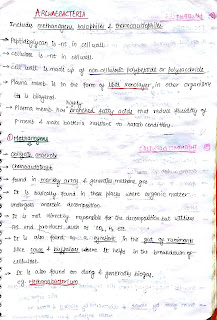 ARCHAEBACTERIA
Includes methanogens, halophiles & thermoacidophiles.
→ Peptidoglycan is not in cell wall.
→ cellulose is not in cell wall.
→ Cell wall is made up of non cellulosic polypeptide or polysaccaride
→ Plasma memb. is in the form of lipid monolayer, in other organisms
it is bilayered.
→ Plasma memb. has highly branched fatty acids that reduce fluidity of
p.memb & make bacteria resistant to harsh conditions.
① Methanogens
→ obligate anaerobe
→ chemoautotroph
→ found in marshy area & generates methane gas.
→ It is basically found in those places where organic matter
undergoes anaerobic decomposition.
→ It is not directly responsible for the decomposition but utilises
its end products such as CO₂, H₂ etc.
→ It is also found as a symbiont in the gut of ruminants
like cows & buffaloes where it helps in the breakdown of
cellulose.
→ It is also found on dung & generally biogas.
eg. Methanobacterium.